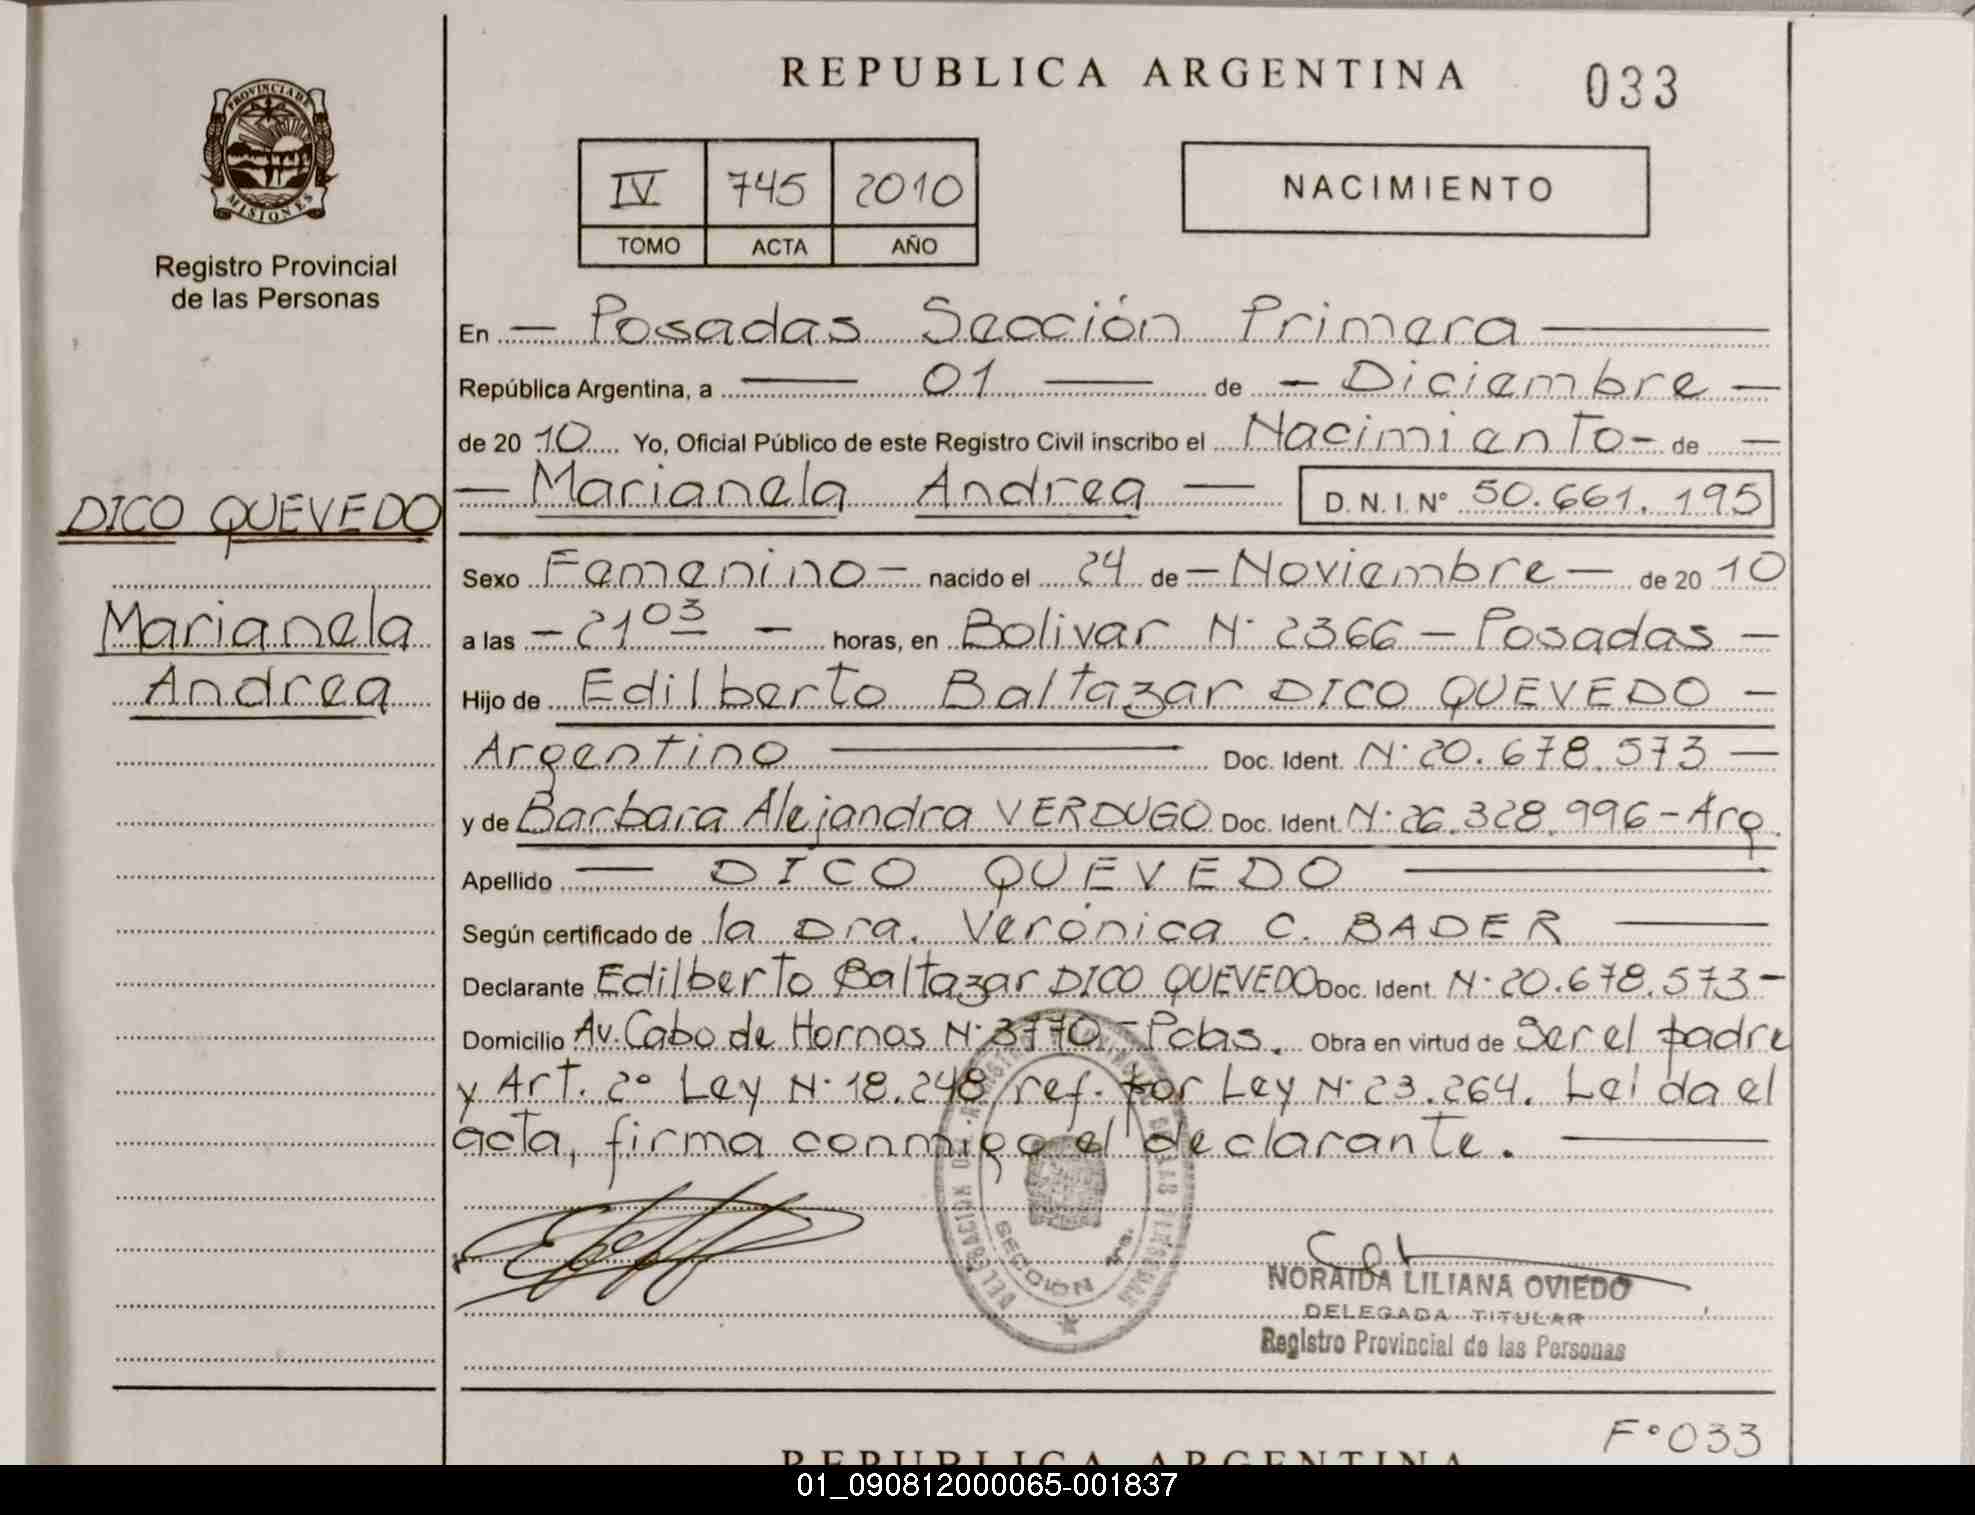 REPUBLICA ARGENTINA
033
PROVINCIA DE
MISIONES
Registro Provincial
de las Personas
IV 745 2010
TOMO ACTA AÑO
NACIMIENTO
En - Posadas Sección Primera
República Argentina, a 01 de - Diciembre -
de 2010 Yo, Oficial Público de este Registro Civil inscribo el Nacimiento - de -
- Marianela Andrea - D.N.I. Nº 50.661.195
DICO QUEVEDO
Marianela
Andrea
Sexo Femenino - nacido el 24 de - Noviembre - de 2010
a las - 21 03 - horas, en Bolivar N· 2366 - Posadas -
Hijo de Edilberto Baltazar DICO QUEVEDO -
Argentino Doc. Ident. N· 20.678.573 -
y de Barbara Alejandra VERDUGO Doc. Ident. N· 26.328.996 - Arg.
Apellido - DICO QUEVEDO
Según certificado de la Dra. Verónica C. BADER
Declarante Edilberto Baltazar DICO QUEVEDO Doc. Ident. N· 20.678.573 -
Domicilio Av. Cabo de Hornos N· 3770 - Pdas. Obra en virtud de Ser el padre
y Art. 2º Ley N· 18.248 ref. por Ley N· 23.264. Leida el
acta, firma conmigo el declarante.
SECCION
NORAIDA LILIANA OVIEDO
DELEGADA TITULAR
Registro Provincial de las Personas
Fº 033
REPUBLICA ARGENTINA
01_090812000065-001837